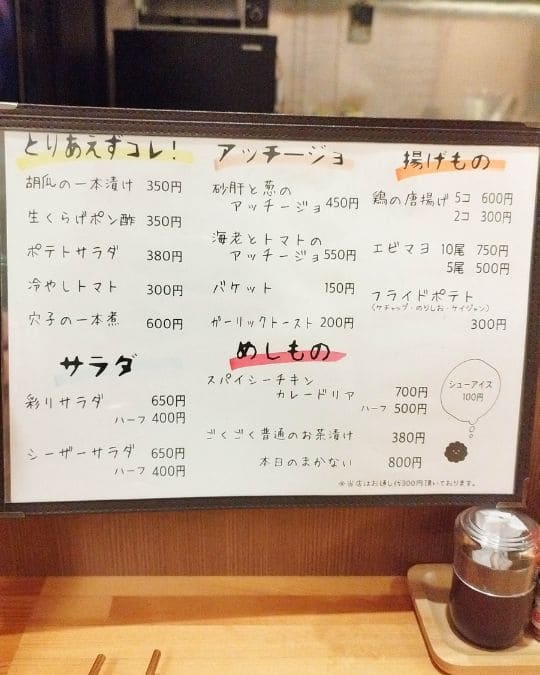 とりあえずコレ!
胡瓜の一本漬け 350円
生くらげポン酢 350円
ポテトサラダ 380円
冷やしトマト 300円
穴子の一本煮 600円
サラダ
彩りサラダ 650円
ハーフ 400円
シーザーサラダ 650円
ハーフ 400円
アッチージョ
砂肝と葱の
アッチージョ 450円
海老とトマトの
アッチージョ 550円
バケット 150円
ガーリックトースト 200円
めしもの
スパイシーチキン
カレードリア 700円
ハーフ 500円
ごくごく普通のお茶漬け 380円
本日のまかない 800円
揚げもの
鶏の唐揚げ 5コ 600円
2コ 300円
エビマヨ 10尾 750円
5尾 500円
フライドポテト
(ケチャップ・のりしお・ケイジャン)
300円
シューアイス
100円
※当店はお通し代300円頂いております。